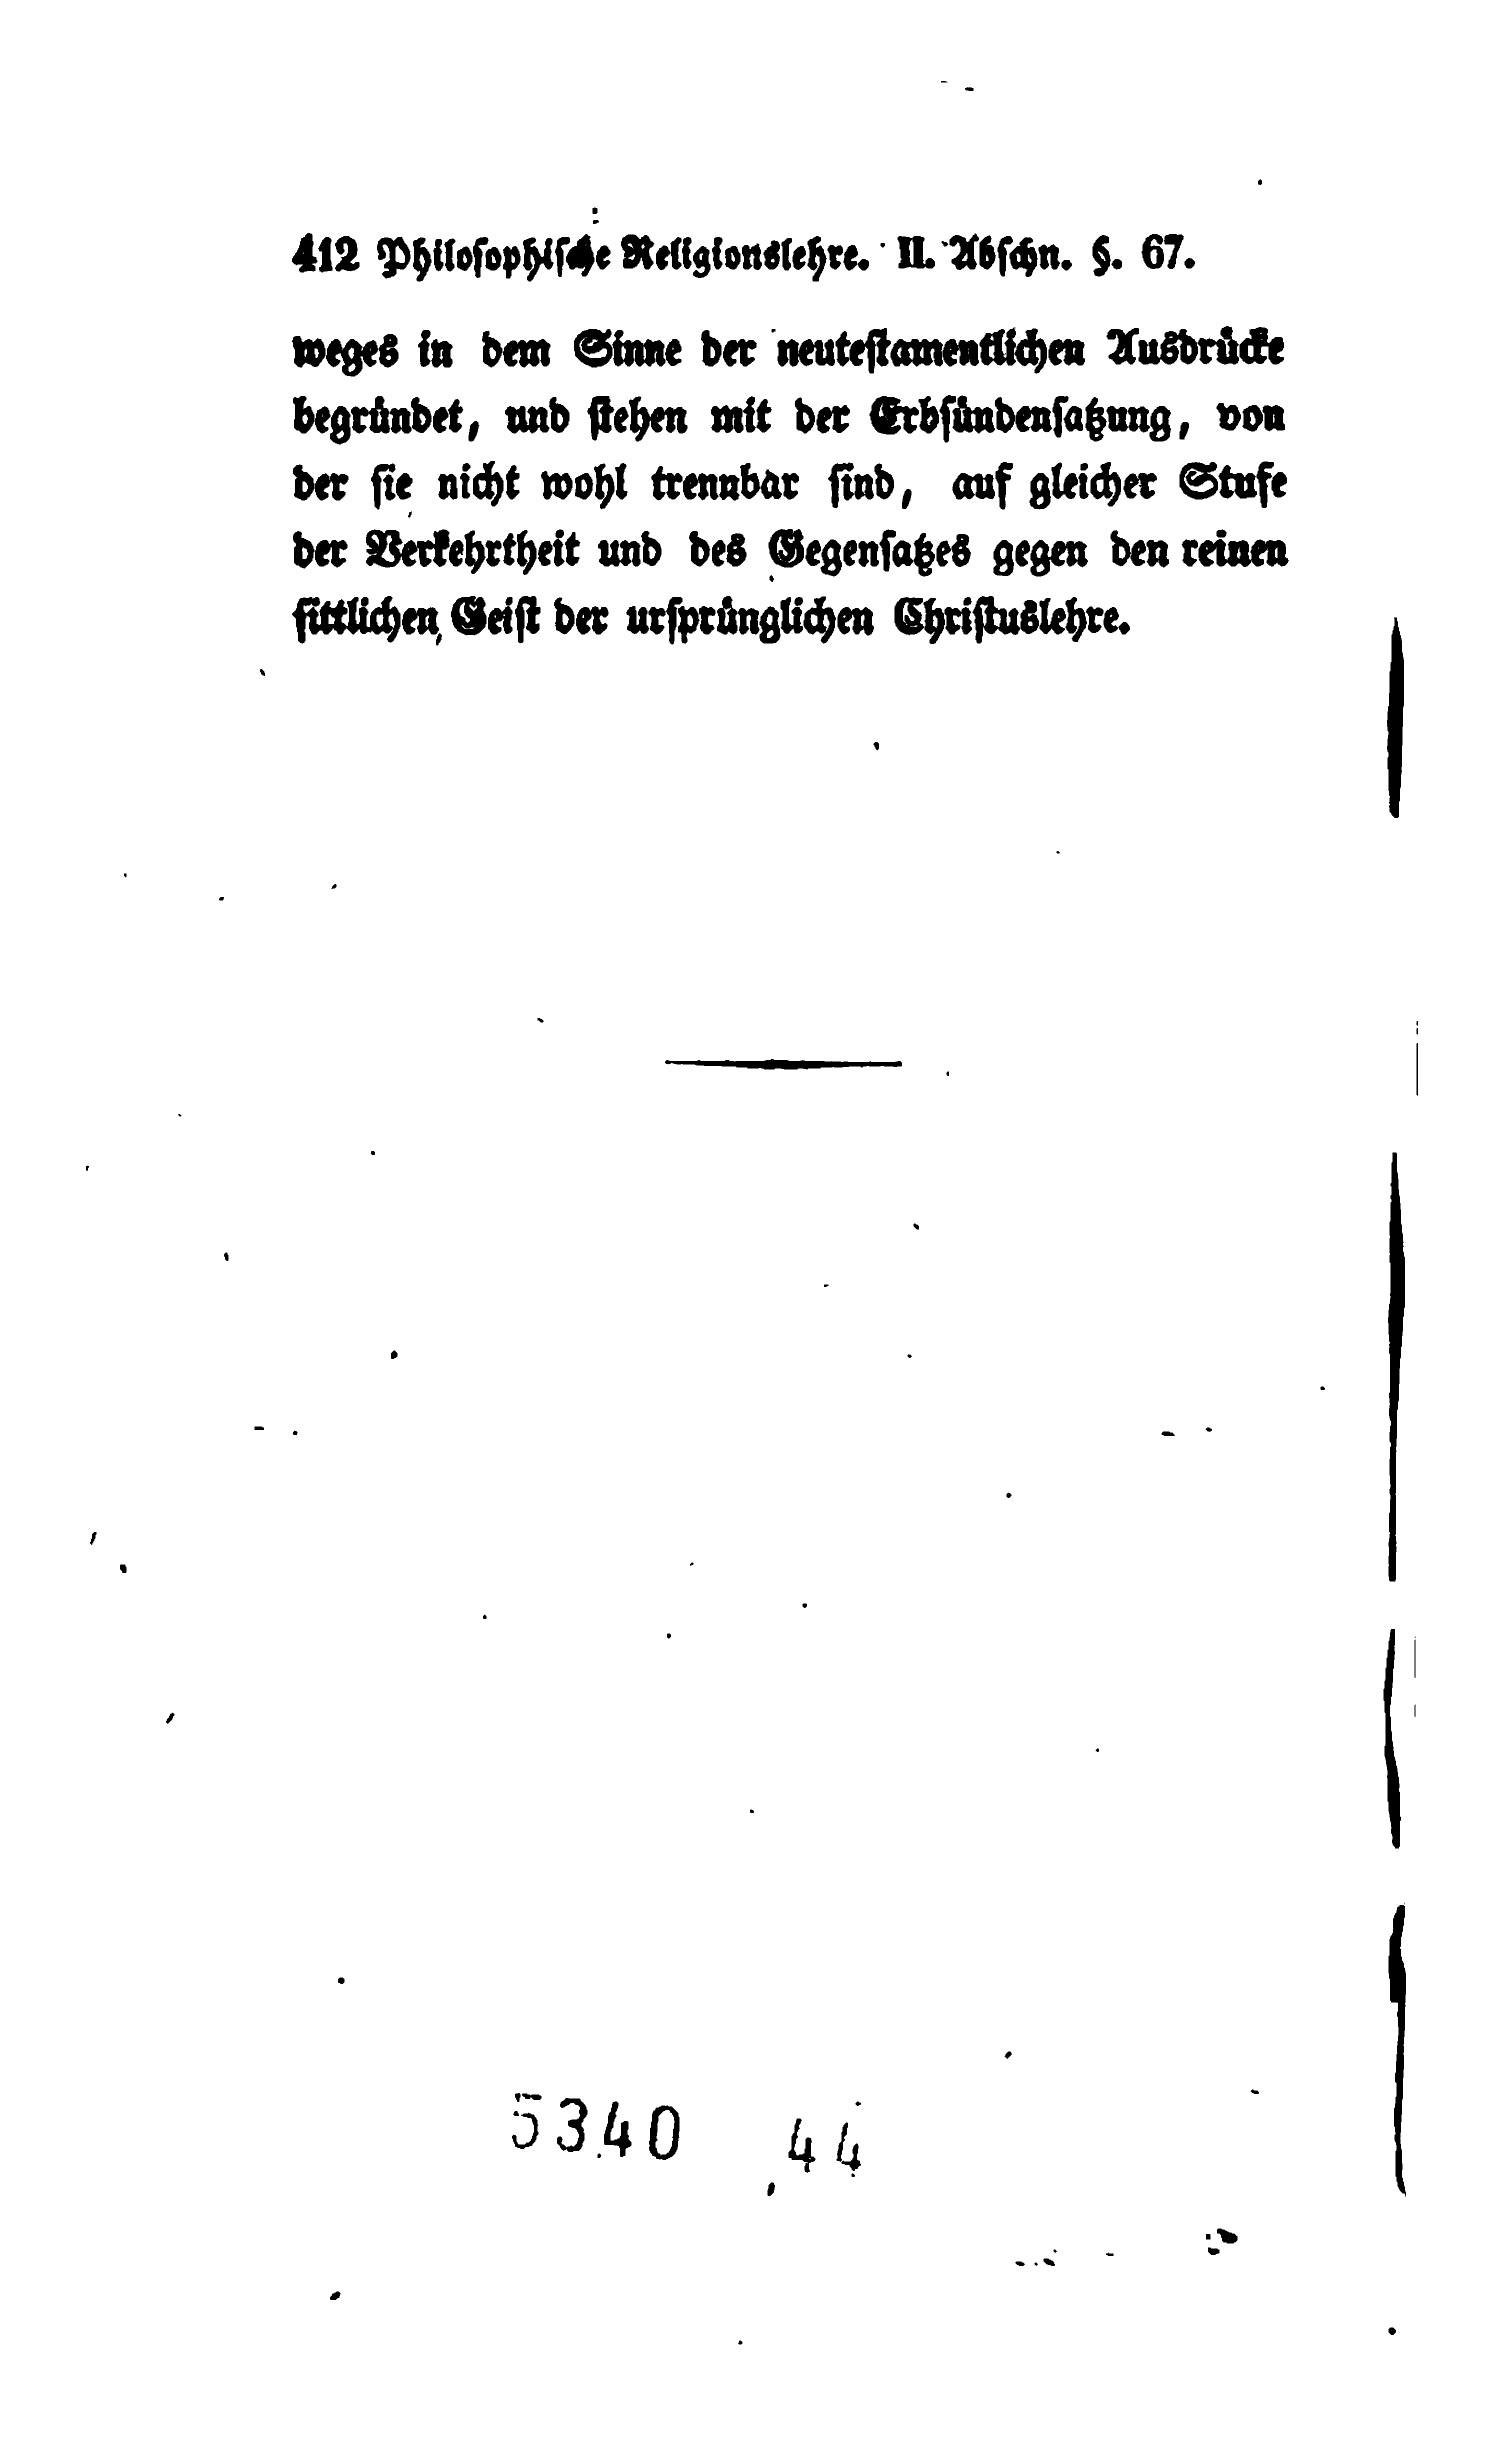 412 Philosophische Religionslehre. II. Abschn. §. 67.
weges in dem Sinne der neutestamentlichen Ausdrücke
begründet, und stehen mit der Erbsündensatzung, von
der sie nicht wohl trennbar sind, auf gleicher Stufe
der Verkehrtheit und des Gegensatzes gegen den reinen
sittlichen Geist der ursprünglichen Christuslehre.
5340 44